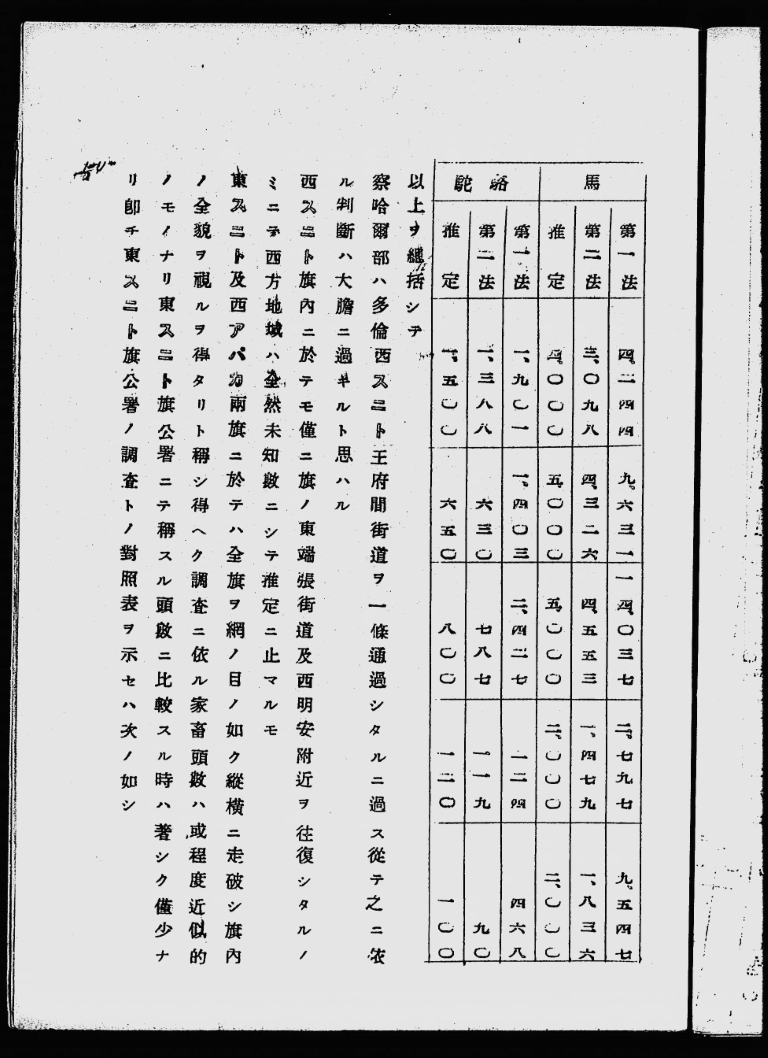 馬 第一法 四、二四四 九、六三一 一四、〇三七 二、七九七 九、五四七
第二法 三、〇九八 四、三二六 四、五五三 一、四七九 一、八三六
推定 四、〇〇〇 五、〇〇〇 五、〇〇〇 二、〇〇〇 二、〇〇〇
駱駝 第一法 一、九〇一 一、四〇三 二、四二七 一二四 四六八
第二法 一、三八八 六三〇 七八七 一一九 九〇
推定 一、五〇〇 六五〇 八〇〇 一二〇 一〇〇
以上ヲ總括シテ
察哈爾部ハ多倫西スニト王府間街道ヲ一條通過シタルニ過ス從テ之ニ依
ル判斷ハ大膽ニ過キルト思ハル
西スニト旗內ニ於テモ僅ニ旗ノ東端張街道及西明安附近ヲ往復シタルノ
ミニテ西方地域ハ全然未知數ニシテ推定ニ止マルモ
東スニト及西アパカ兩旗ニ於テハ全旗ヲ網ノ目ノ如ク縱橫ニ走破シ旗內
ノ全貌ヲ視ルヲ得タリト稱シ得ヘク調査ニ依ル家畜頭數ハ或程度近似的
ノモノナリ東スニト旗公署ニテ稱スル頭數ニ比較スル時ハ著シク僅少ナ
リ卽チ東スニト旗公署ノ調査トノ對照表ヲ示セハ次ノ如シ